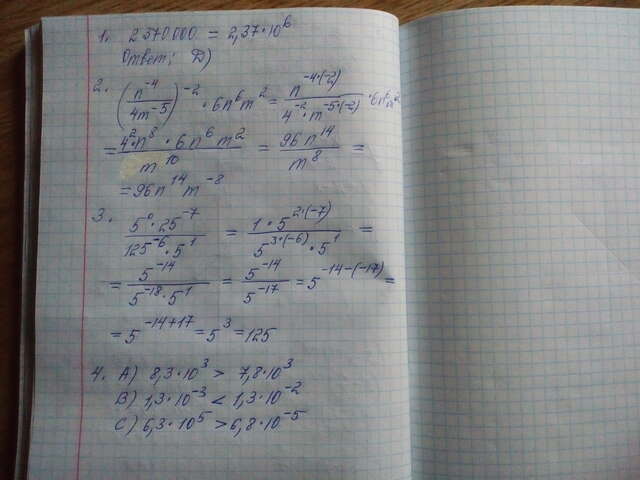 1. 2 370 000 = 2,37·10⁶
Ответ: D)
2. (n⁻⁴/4m⁻⁵)⁻² · 6n⁶m² = n⁻⁴·⁽⁻²⁾/4⁻²·m⁻⁵·⁽⁻²⁾ · 6n⁶m²
= 4²·n⁸·6n⁶m²/m¹⁰ = 96n¹⁴/m⁸ =
= 96n¹⁴m⁻⁸
3. 5⁰·25⁻⁷/125⁻⁶·5¹ = 1·5²·⁽⁻⁷⁾/5³·⁽⁻⁶⁾·5¹ =
= 5⁻¹⁴/5⁻¹⁸·5¹ = 5⁻¹⁴/5⁻¹⁷ = 5⁻¹⁴⁻⁽⁻¹⁷⁾ =
= 5⁻¹⁴⁺¹⁷ = 5³ = 125
4. A) 8,3·10³ > 7,8·10³
B) 1,3·10⁻³ < 1,3·10⁻²
C) 6,3·10⁵ > 6,8·10⁻⁵